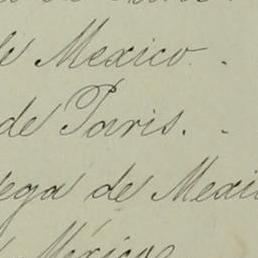 de Mexico.
de Paris.
ega de Mexi
Mexico